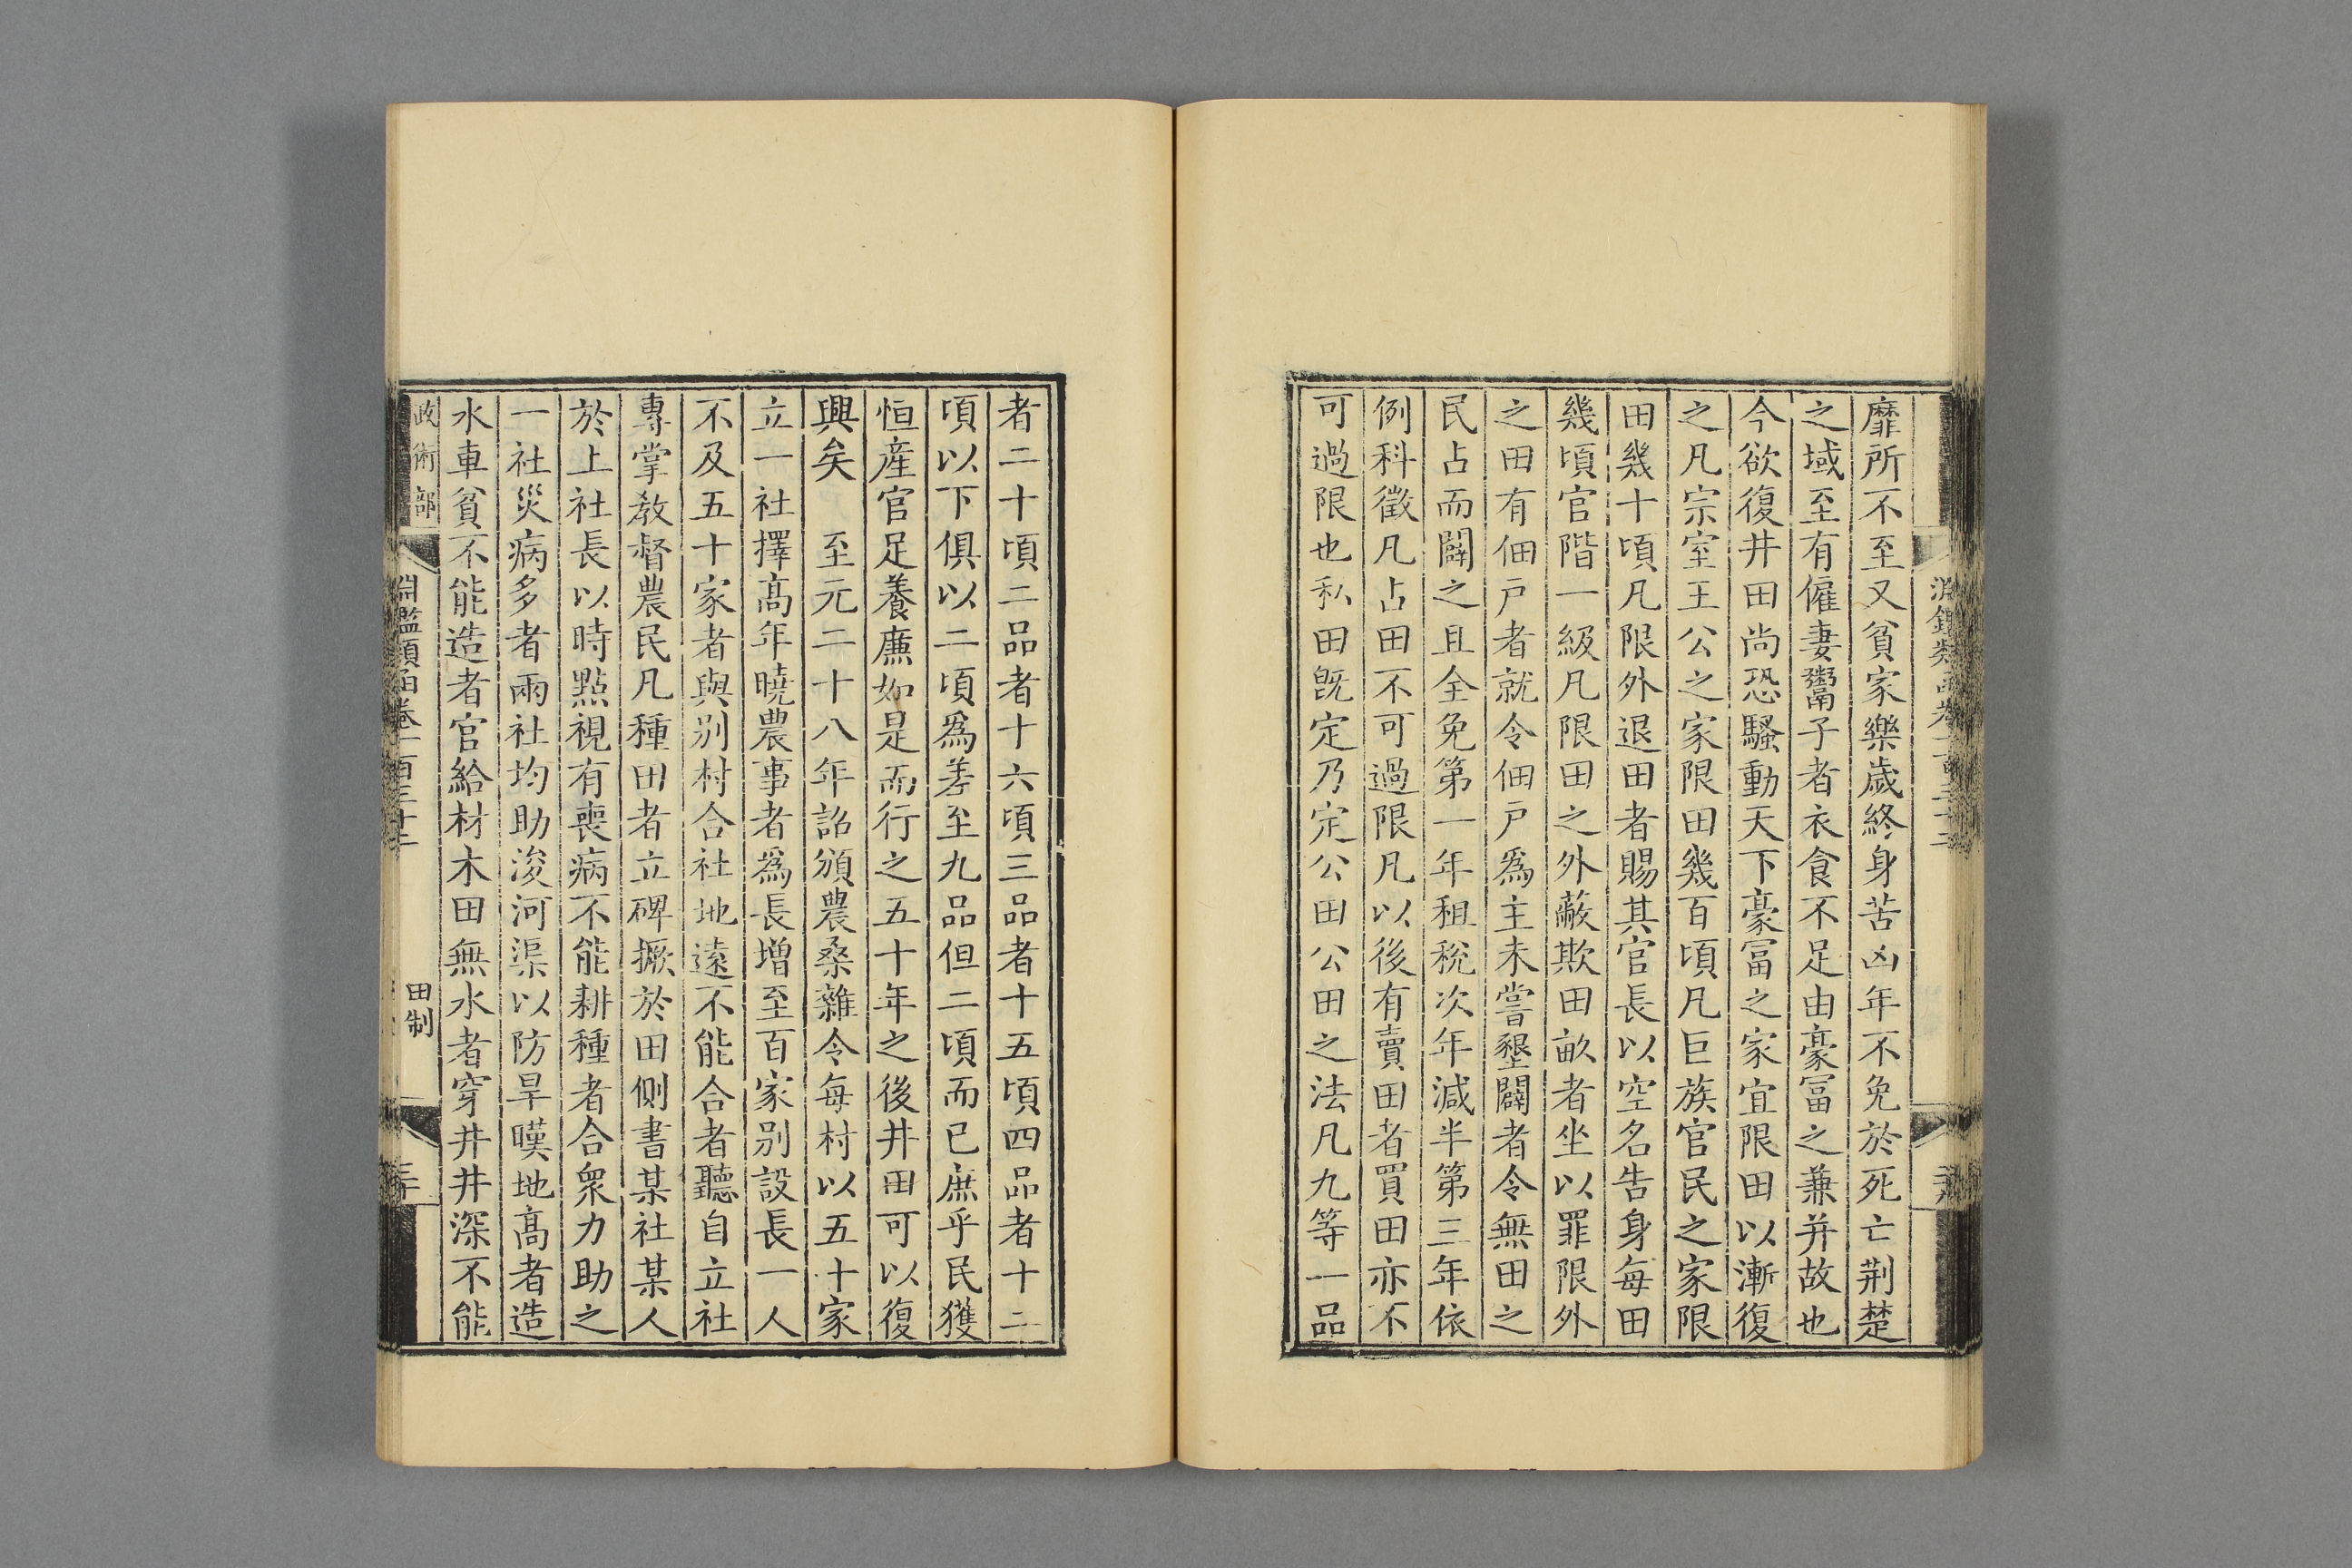 靡所不至又貧家樂歲終身苦凶年不免於死亡荆楚
之域至有僱妻鬻子者衣食不足由豪冨之兼并故也
今欲復井田尚恐騷動天下豪冨之家宜限田以漸復
之凡宗室王公之家限田幾百頃凡巨族官民之家限
田幾十頃凡限外退田者賜其官長以空名告身每田
幾頃官階一級凡限田之外蔽欺田畝者坐以罪限外
之田有佃戶者就令佃戶爲主未嘗墾闢者令無田之
民占而闢之且全免第一年租稅次年減半第三年依
例科徵凡占田不可過限凡以後有賣田者買田亦不
可過限也私田旣定乃定公田公田之法凡九等一品
者二十頃二品者十六頃三品者十五頃四品者十二
頃以下俱以二頃爲差至九品但二頃而已庶乎民獲
恒產官足養廉如是而行之五十年之後井田可以復
興矣　至元二十八年詔頒農桑雜令每村以五十家
立一社擇高年曉農事者爲長增至百家别設長一人
不及五十家者與别村合社地遠不能合者聽自立社
專掌教督農民凡種田者立碑撅於田側書某社某人
於上社長以時點視有喪病不能耕種者合衆力助之
一社災病多者兩社均助浚河渠以防旱暵地高者造
水車貧不能造者官給材木田無水者穿井井深不能
政術部　淵鑑類函卷一百三十二　田制